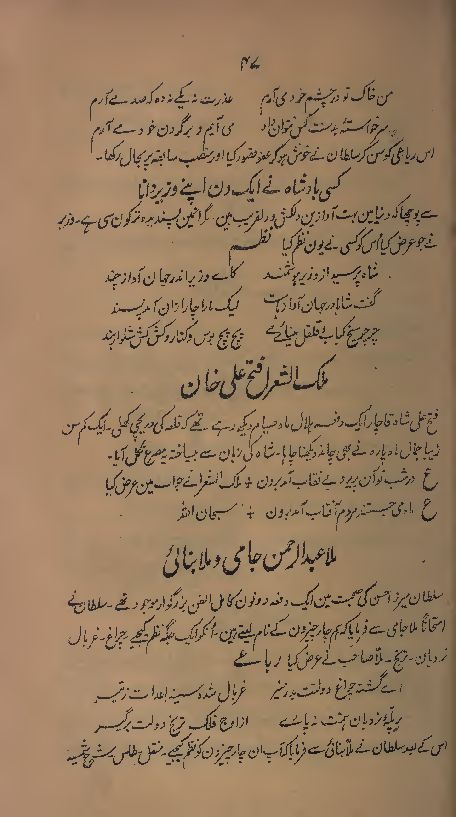 ۴۷
من خاک تو در چشم خرد می آرم عذرت نہ یکے نہ دہ کہ صد مے آرم
سر خواستۂ بدست کس نتوان داد می آیم و بر گردن خود مے آرم
اس رباعی کو سن کر سلطان نے خوش ہو کر عفو قصور کیا اور منصب سابقہ پر بحال رکھا۔
کسی بادشاہ نے ایک دن اپنے وزیر دانا
سے پوچھا کہ دنیا مین بہت آوازین دلکش و دلفریب مین۔ مگر انمین پسندیدہ تر کون سی ہے۔ وزیر
نے جو عرض کیا اُس کو کسی نے یون نظم کیا نظم
شاہ پرسید از وزیر ہوشمند کاے وزیر اندر جہان آواز چند
گفت شاہا در جہان آواز ہست لیک مارا چار ازان آمد پسند
چرچر سیخ کباب و قلقل مینائے مے پچ پچ بوس و کنار و کش کش شلوار بند
ملک الشعرا فتح علی خان
فتح علی شاہ قاچار ایک دفعہ ہلال ماہ صیام دیکھ رہے تھے کہ قلعہ کی دریچی کھلی۔ ایک کم سن
زیبا جمال ماہ پارہ نے بھی چاند دیکھنا چاہا۔ شاہ کی زبان سے بیساختہ مصرع نکل آیا۔
ع در شب نو آن پریرو بے نقاب آمد برون ÷ ملک الشعرا نے جواب مین عرض کیا
ع ماہ می جستند مردم آفتاب آمد برون ÷ سبحان اللہ
ملا عبدالرحمن جامی و ملا بنائی
سلطان میرزا حسن کی صحبت مین ایک دفعہ دونون کامل الفن بزرگوار موجود تھے۔ سلطان نے
امتحاناً ملا جامی سے فرمایا کہ ہم چار چیزون کے نام لیتے ہین۔ اُنکو ایک جگہ نظم کیجیے چراغ۔ غربال
نردبان۔ ترنج۔ ملا صاحب نے عرض کیا رباعی
اے گشتہ چراغ دولتت بدر منیر غربال شدہ سینہ اعدات ز تیر
بر پلۂ نردبان ہمت نہ پاے از اوج فلک ترنج دولت برگیر
اس کے بعد سلطان نے ملا بنائی سے فرمایا کہ آپ ان چار چیزون کو نظم کیجیے۔ منقل۔ طاس